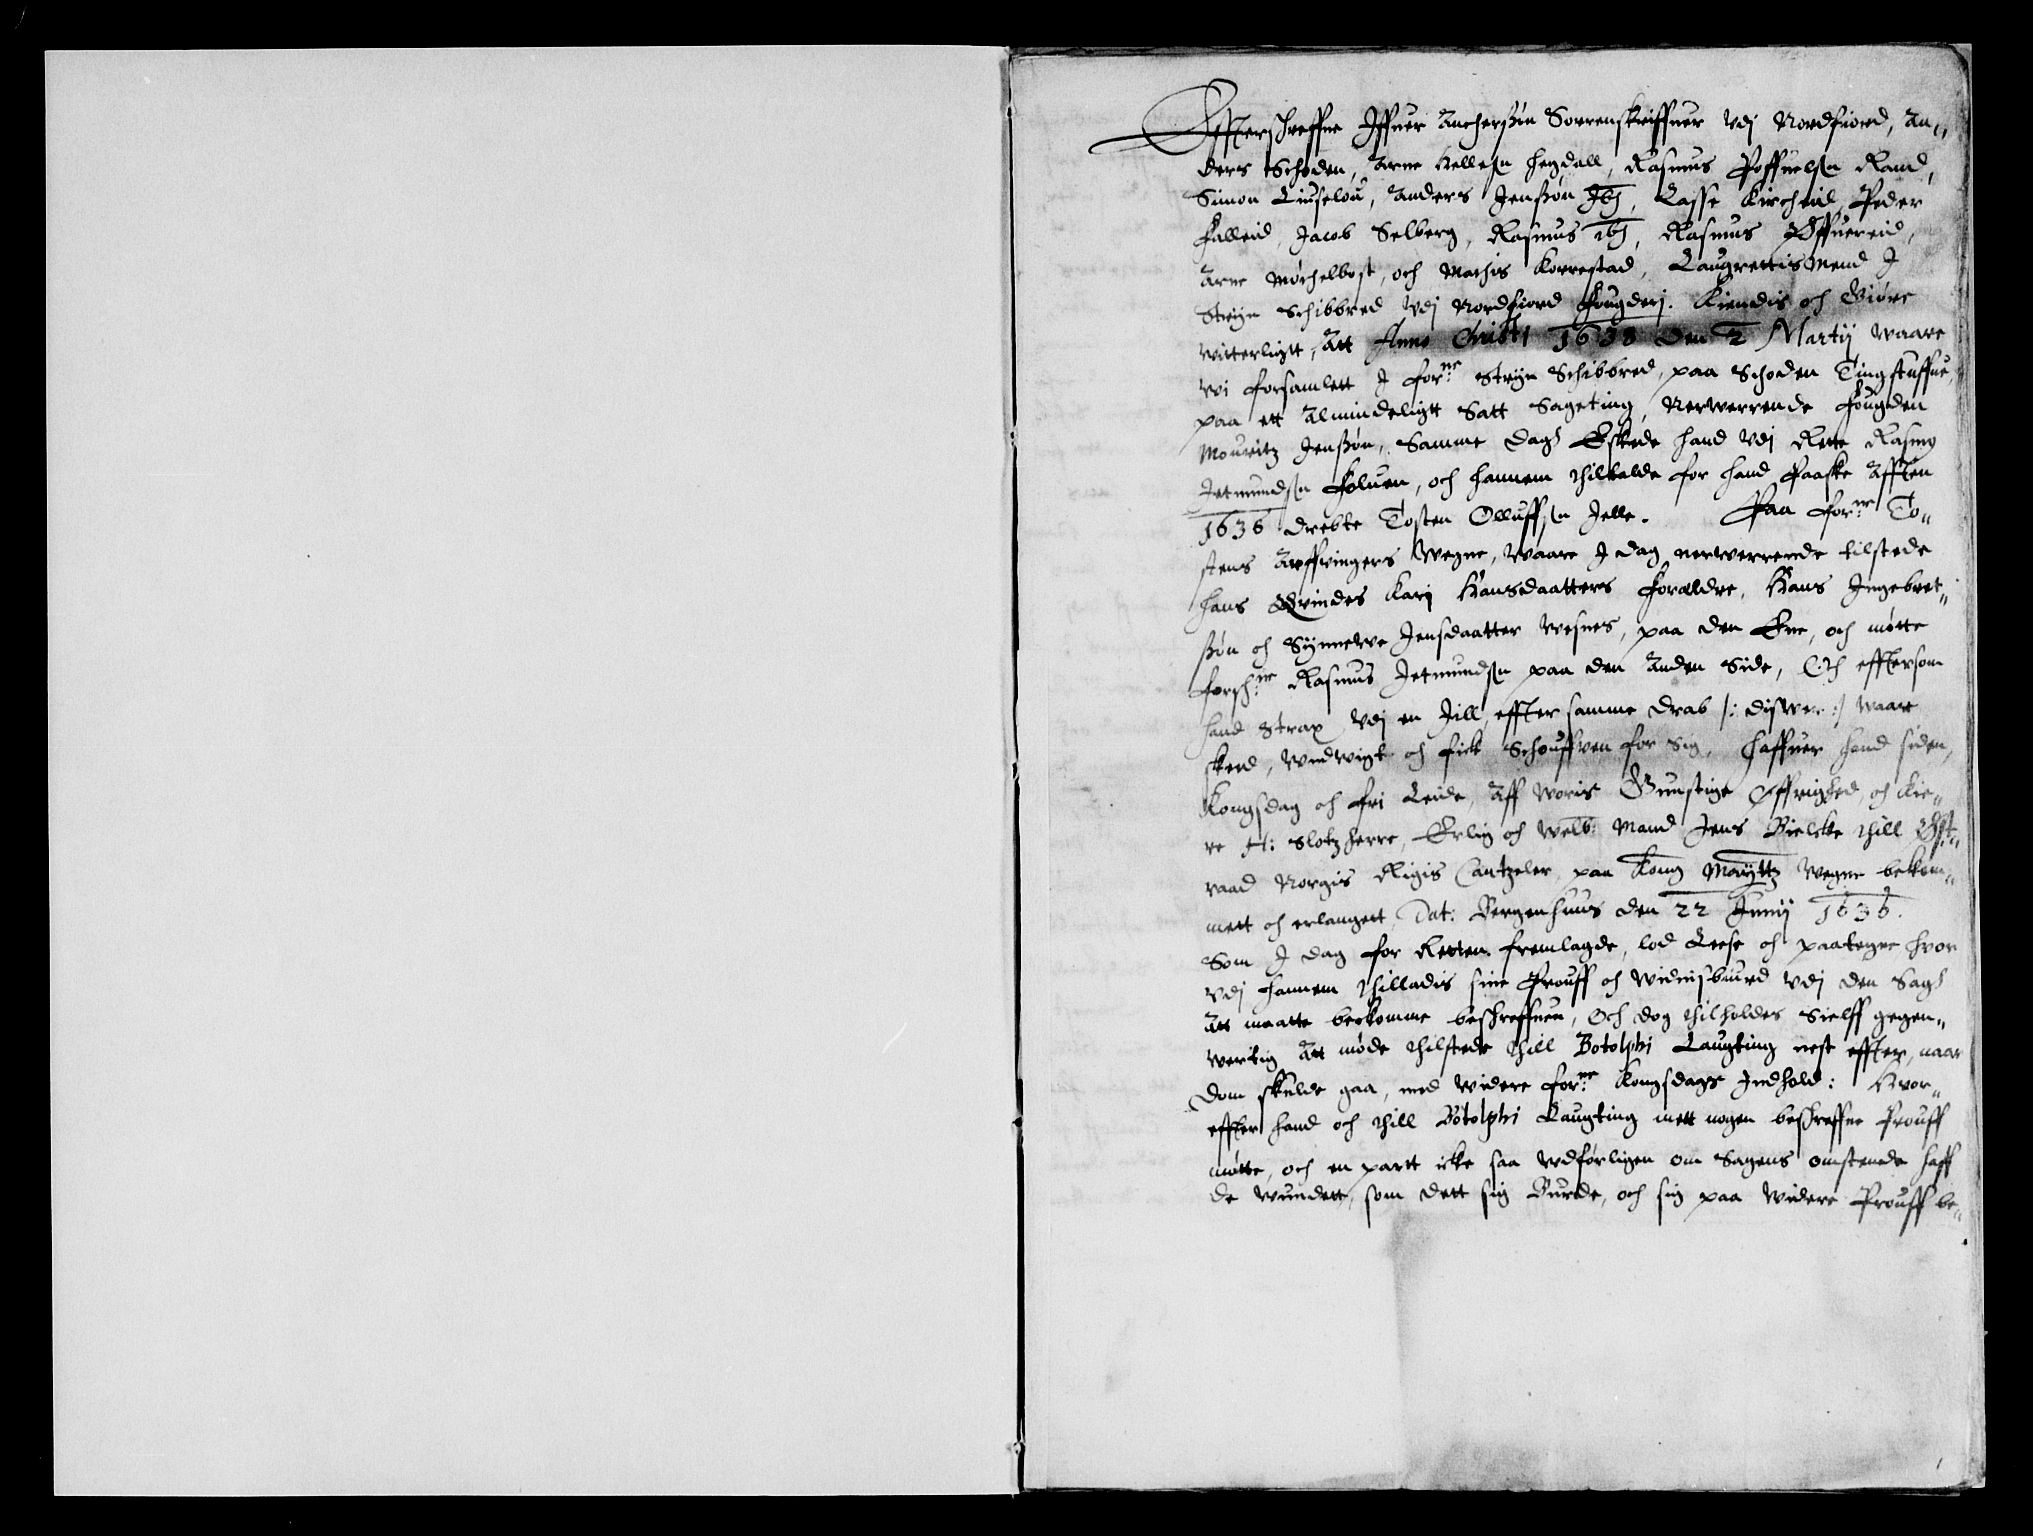 Effterschreffne Iffuer Anchersøn Sorrenskriffuer vdj Nordfiord, An„
ders Schoden, Arne Helleßn Hegdall, Rasmus Poffuelßn Rand,
Simon Quiselou, Anders Jenßøn Ibj, Lasse Kircheid, Peder
Falleid, Jacob Selberg, Rasmus ibj, Rasmus Øffuereid,
Arne Møchelbost, och Mathis Korrestad, Laugrettismend I
Stryn Schibbred vdj Nordfiord Fougderj. Kiendis och Giøre
witterligtt, Att Anno Christi 1638 den 2 Martij waare
wi forsamlett I for:ne Stryn Schibbred, paa Schoden Tingstuffue,
paa ett Almindeligtt Satt Sageting, Nerwerrende Fougden
Mouritz Jenßøn, Samme dag Eskede hand vdj Rette Rasmus
Jetmundßn Foluen, och hannem thiltalde for hand Paaske Afften
1636 drebte Tosten Olluffßn Jelle. Paa for:ne To„
stens Arffwingers Wegne, waare I dag nerwerrende tilstede
hans Qvindes Karj Hansdaatters Foreldre, Hans Ingebret„
ßøn och Synnewe Jensdaatter Wesnes, paa den Ene, och møtte
forsch:ne Rasmus Jetmundßn paa den Anden Side, Och efftersom
hand Strax vdj en Jill effter samme drab /: diswer :/ waar
skeed, vndwigt och fick Schouffuen for Sig, Haffuer hand siden,
Kongsdag och fri Leide, Aff woris Gunstige Øffrighed, och Kie„
re H: Slotzherre, Erlig och Welb: Mand Jens Bielcke thill Østr„
raad Norgis Rigis Cantzeler, paa Kong Maÿttz Wegne bekom„
mett och erlangett, Dat: Bergenhuus den 22 Junij 1636.
Som I dag for Retten fremlagde, lod Leese och paategne hvor
vdj hannem thilladis sine Prouff och widnisbiurd vdj den Sag
Att maatte bekomme beschreffuen, Och dog thilholdes Sielff gegen„
wertig Att møde thilstede thill Botolphi Laugting nest effter, naar
Dom skulde gaa, med widere for:ne Kongsdags Indhold: Hvor„
effter hand och thill Botolphi Laugting mett nogen beschreffne Prouff
møtte, och en partt icke saa wdførligen om Sagens omstende haff
de wundett, som dett sig Burde, och sig paa widere Prouff be„